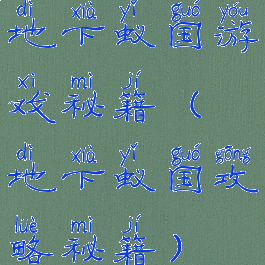 dì xià yǐ guó yóu
地下蚁国游
xì mì jí
戏秘籍(
dì xià yǐ guó gōng
地下蚁国攻
lüè mì jí
略秘籍)